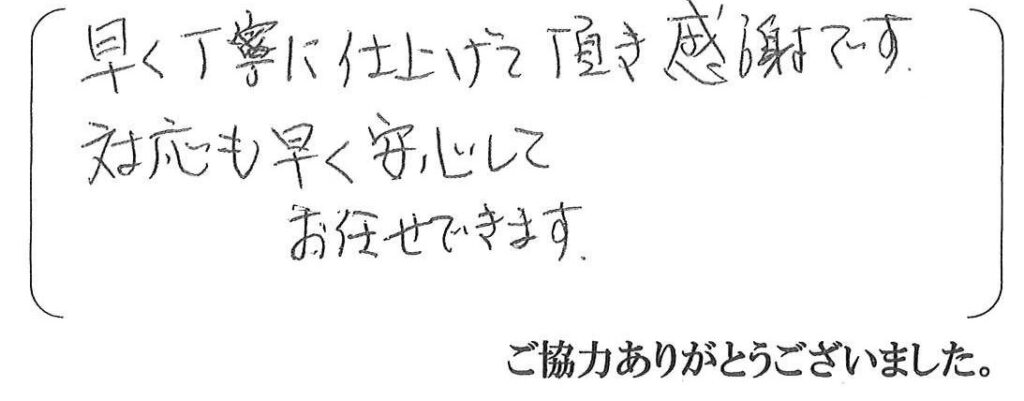 早く丁寧に仕上げて頂き感謝です.
対応も早く安心して
お任せできます.
ご協力ありがとうございました。